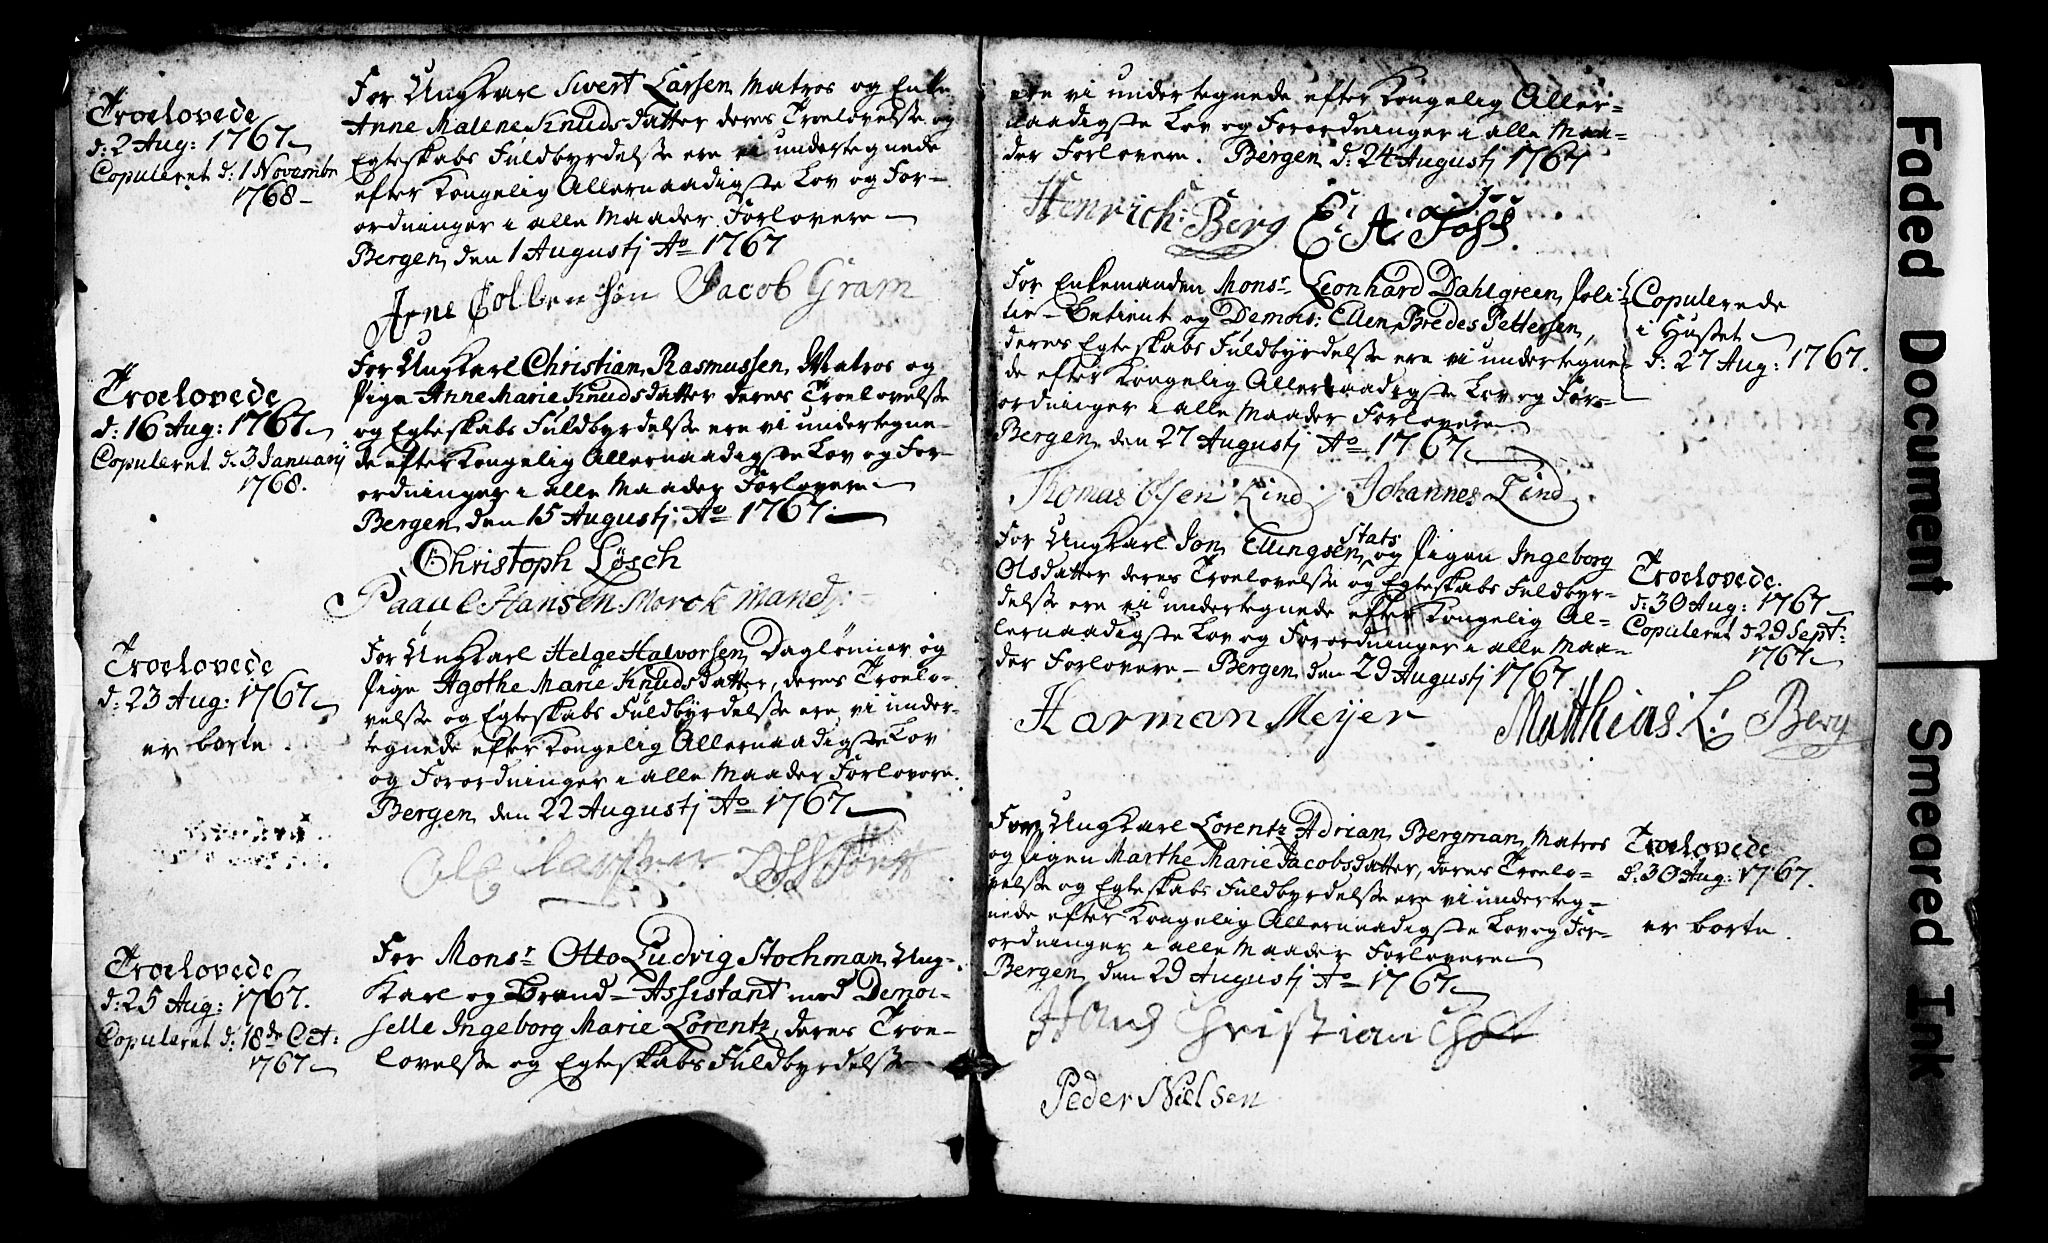 Troelovede
d: 2 Aug: 1767
Copuleret d: 1 Novembr
1768
For Ungkarl Sivert Larsen Matros og Enke
Anne Malene Knudsdatter deres Troelovelse og
Egteskabs Fuldbyrdelse ere vi undertegnede
efter Kongelig Allernaadigste Lov og For-
ordninger i alle Maader Forlovere
Bergen den 1 Augustj Ao 1767
Jacob Gram
Troelovede
d: 16 Aug: 1767
Copuleret d. 3 January
1768.
For Ungkarl Christian Rasmussen Matros og
Pige Anne Marie Knudsdatter deres Troelovelse
og Egteskabs Fuldbyrdelse ere vi undertegne-
de efter Kongelig Allernaadigste Lov og For-
ordninger i alle Maader Forlovere
Bergen den 15 Augustj Ao 1767.
Christoph Lösch
Paaul Hansen Morck mand
Troelovede
d: 23 Aug: 1767
er borte.
For Ungkarl Helge Halvorsen Daglønner og
Pige Agothe Marie Knudsdatter, deres Troelo-
velse og Egteskabs Fuldbyrdelse ere vi under-
tegnede efter Kongelig Allernaadigste Lov
og Forordninger i alle Maader Forlovere.
Bergen den 22 Augustj Ao 1767
Troelovede
d: 25 Aug: 1767.
Copuleret d: 18de Oct:
1767
For Monsr Otto Ludvig Stochman Ung-
karl og Brand-Assistant med Demoi-
selle Ingeborg Marie Lorentz, deres Troe-
lovelse og Egteskabs Fuldbyrdelse
ere vi undertegnede efter Kongelig Aller-
naadigste Lov og Forordninger i alle Maa-
der Forlovere. Bergen d: 24 Augustj 1767
Henrich: Berg
For Enkemanden Monsr Leonhard Dahlgreen, Poli-
tie-Betient og Demois: Ellen Bredes Pettersen,
deres Egteskabs Fuldbyrdelse ere vi undertegne-
de efter Kongelig Allernaadigste Lov og For-
ordninger i alle Maader Forlovere
Bergen den 27 Augustj Ao 1767
Copulerede
i Huset
d: 27 Aug: 1767.
Thomas Olsen Lind Johannes Lind
For Ungkarl Jon Ellingsen Stats og Pigen Ingeborg
Olsdatter deres Troelovelse og Egteskabs Fuldbyr-
delse ere vi undertegnede efter Kongelig Al-
lernaadigste Lov og Forordninger i alle Maa-
der Forlovere - Bergen den 29 Augustj 1767
Troelovede
d: 30 Aug: 1767
Copuleret d 29 Sept:
1767
Harman Meijer Matthias L: Berg
For Ungkarl Lorentz Adrian Bergman Matros
og Pigen Marthe Marie Jacobsdatter, deres Troelo-
velse og Egteskabs Fuldbyrdelse ere vi underteg-
nede efter Kongelig Allernaadigste Lov og For-
ordninger i alle Maader Forlovere
Bergen den 29 Augustj Ao 1767
Troelovede
d: 30 Aug: 1767.
er borte.
Hans Christian
Peder Nielsen
Faded Document
Smeared Ink